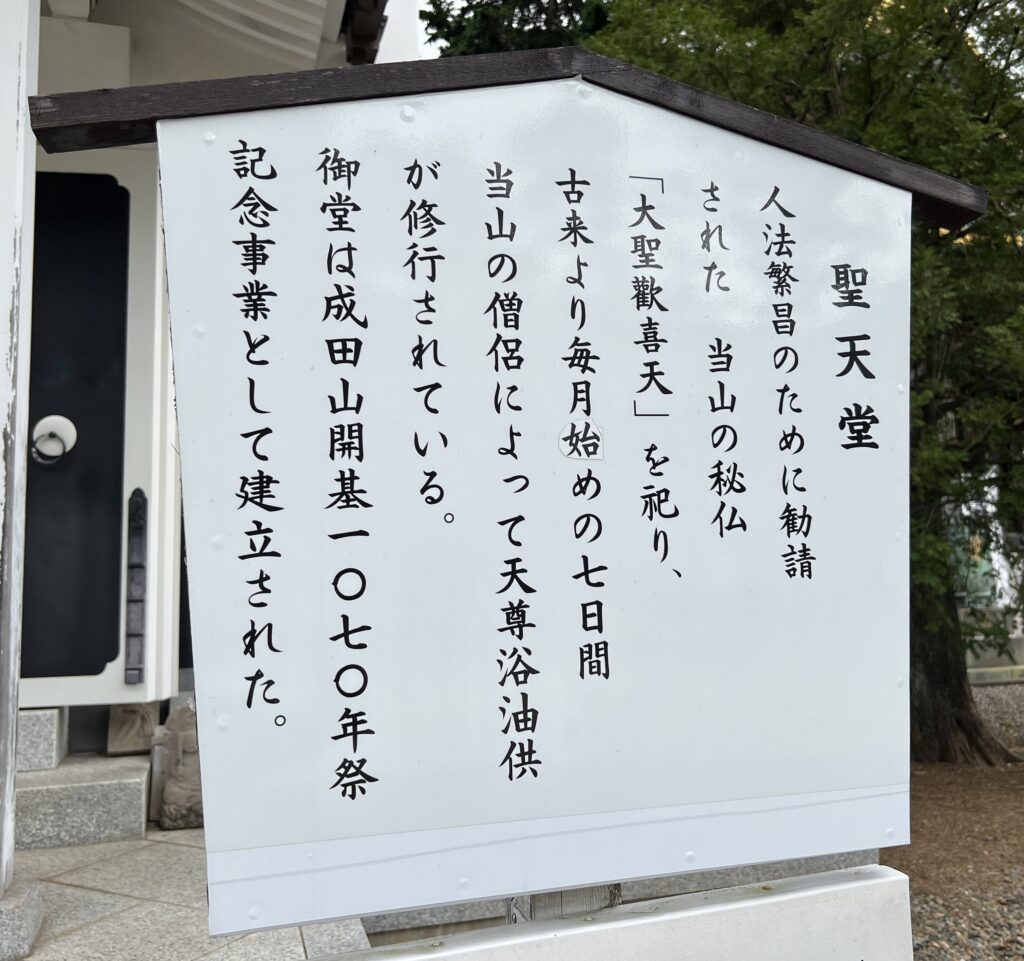 聖天堂
人法繁昌のために勧請
された　当山の秘仏
「大聖歡喜天」を祀り、
古来より毎月始めの七日間
当山の僧侶によって天尊浴油供
が修行されている。
御堂は成田山開基一〇七〇年祭
記念事業として建立された。